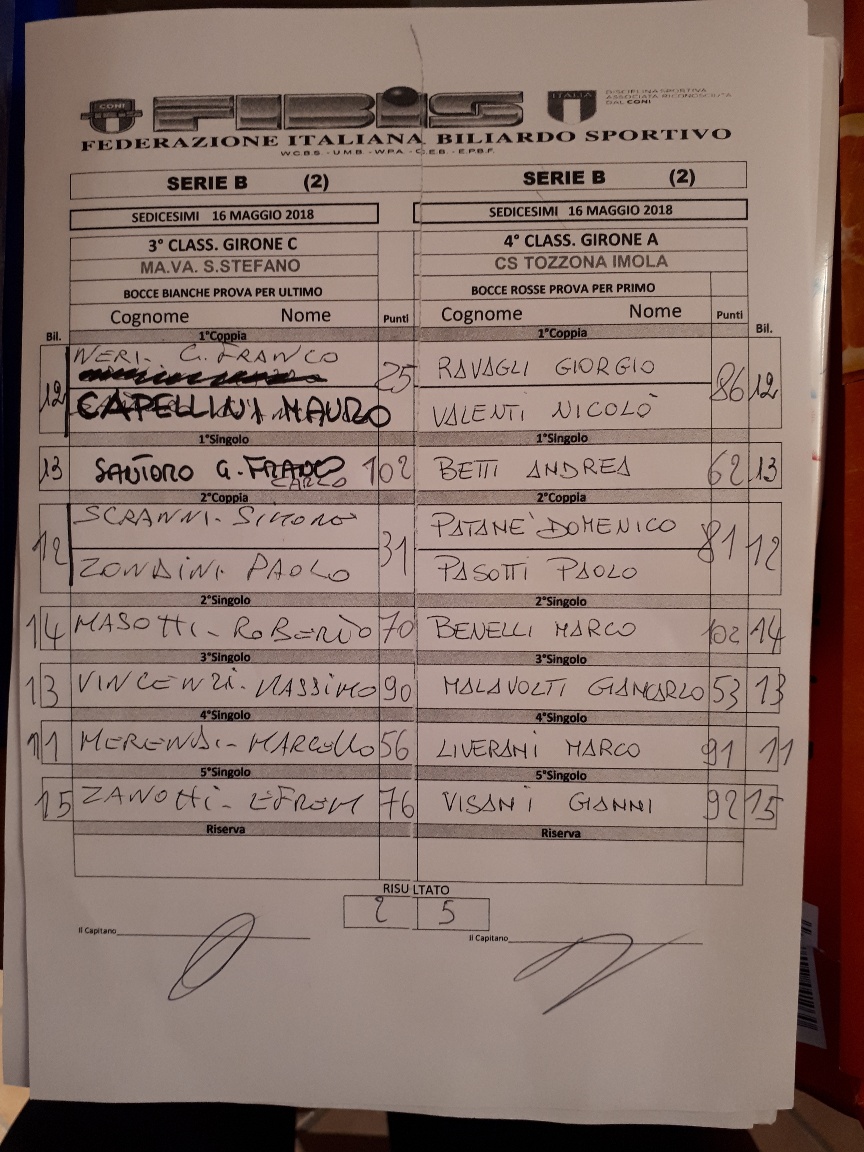 CONI FIBIS ITALIA DISCIPLINA SPORTIVA
ASSOCIATA RICONOSCIUTA
DAL CONI
FEDERAZIONE ITALIANA BILIARDO SPORTIVO
W.C.B.S. - U.M.B. - W.P.A. - C.E.B. - E.P.B.F.
SERIE B (2) SERIE B (2)
SEDICESIMI 16 MAGGIO 2018 SEDICESIMI 16 MAGGIO 2018
3° CLASS. GIRONE C 4° CLASS. GIRONE A
MA.VA. S.STEFANO CS TOZZONA IMOLA
BOCCE BIANCHE PROVA PER ULTIMO BOCCE ROSSE PROVA PER PRIMO
Cognome Nome Punti Cognome Nome Punti
Bil. 1°Coppia 1°Coppia Bil.
NERI - G. FRANCO RAVAGLI GIORGIO
12 25 86 12
CAPELLINI MAURO VALENTI NICOLÒ
1°Singolo 1°Singolo
13 SANTORO G. CARLO 102 BETTI ANDREA 62 13
2°Coppia 2°Coppia
SCRANNI - SIMONE PATANE' DOMENICO
12 31 81 12
ZONDINI PAOLO PASOTTI PAOLO
2°Singolo 2°Singolo
14 MASOTTI - ROBERTO 70 BENELLI MARCO 102 14
3°Singolo 3°Singolo
13 VINCENZI - MASSIMO 90 MALAVOLTI GIANCARLO 53 13
4°Singolo 4°Singolo
11 MERENDI - MARCELLO 56 LIVERANI MARCO 91 11
5°Singolo 5°Singolo
15 ZANOTTI - EFREM 76 VISANI GIANNI 92 15
Riserva Riserva
RISULTATO
2 5
Il Capitano Il Capitano